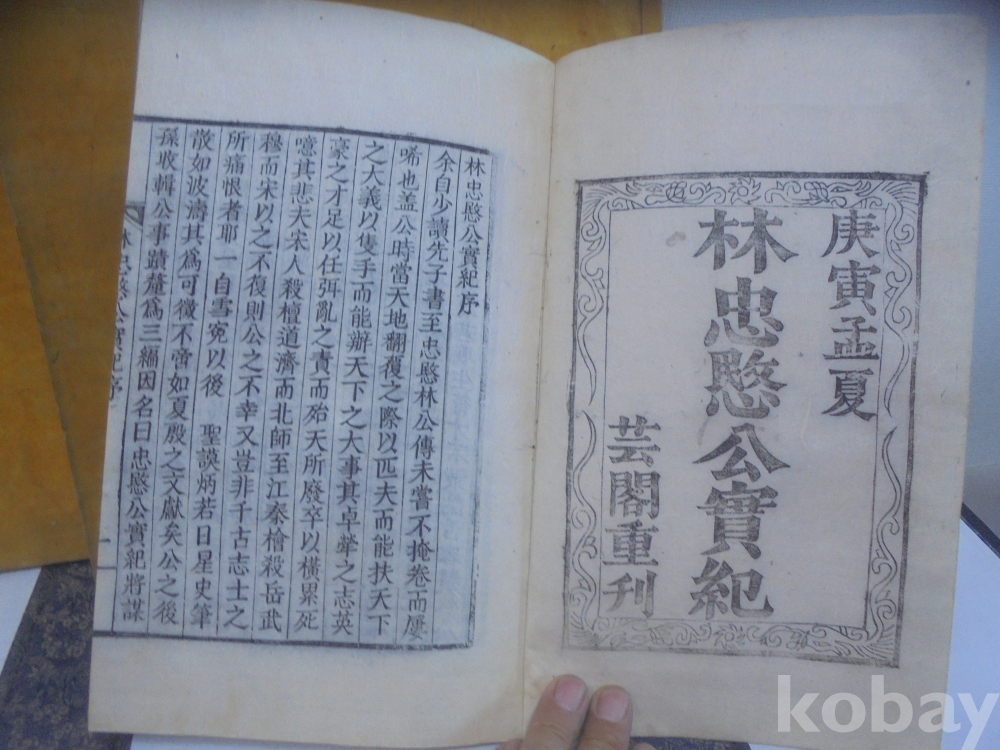 庚寅孟夏
林忠愍公實紀
芸閣重刊
林忠愍公實紀序
余自少讀先子書至忠愍林公傳未嘗不掩卷而屢
唏也盖公時當天地翻覆之際以匹夫而能扶天下
之大義以隻手而能辦天下之大事其卓犖之志英
豪之才足以任弭亂之責而殆天所廢卒以橫累死
噫其悲夫宋人殺檀道濟而北師至江秦檜殺岳武
穆而宋以之不復則公之不幸又豈非千古志士之
所痛恨者耶一自雪寃以後 聖謨炳若日星史筆
散如波濤其爲可徵不啻如夏殷之文獻矣公之後
孫收輯公事蹟釐爲三編因名曰忠愍公實紀將謀
林忠愍公實紀序
一
kobay